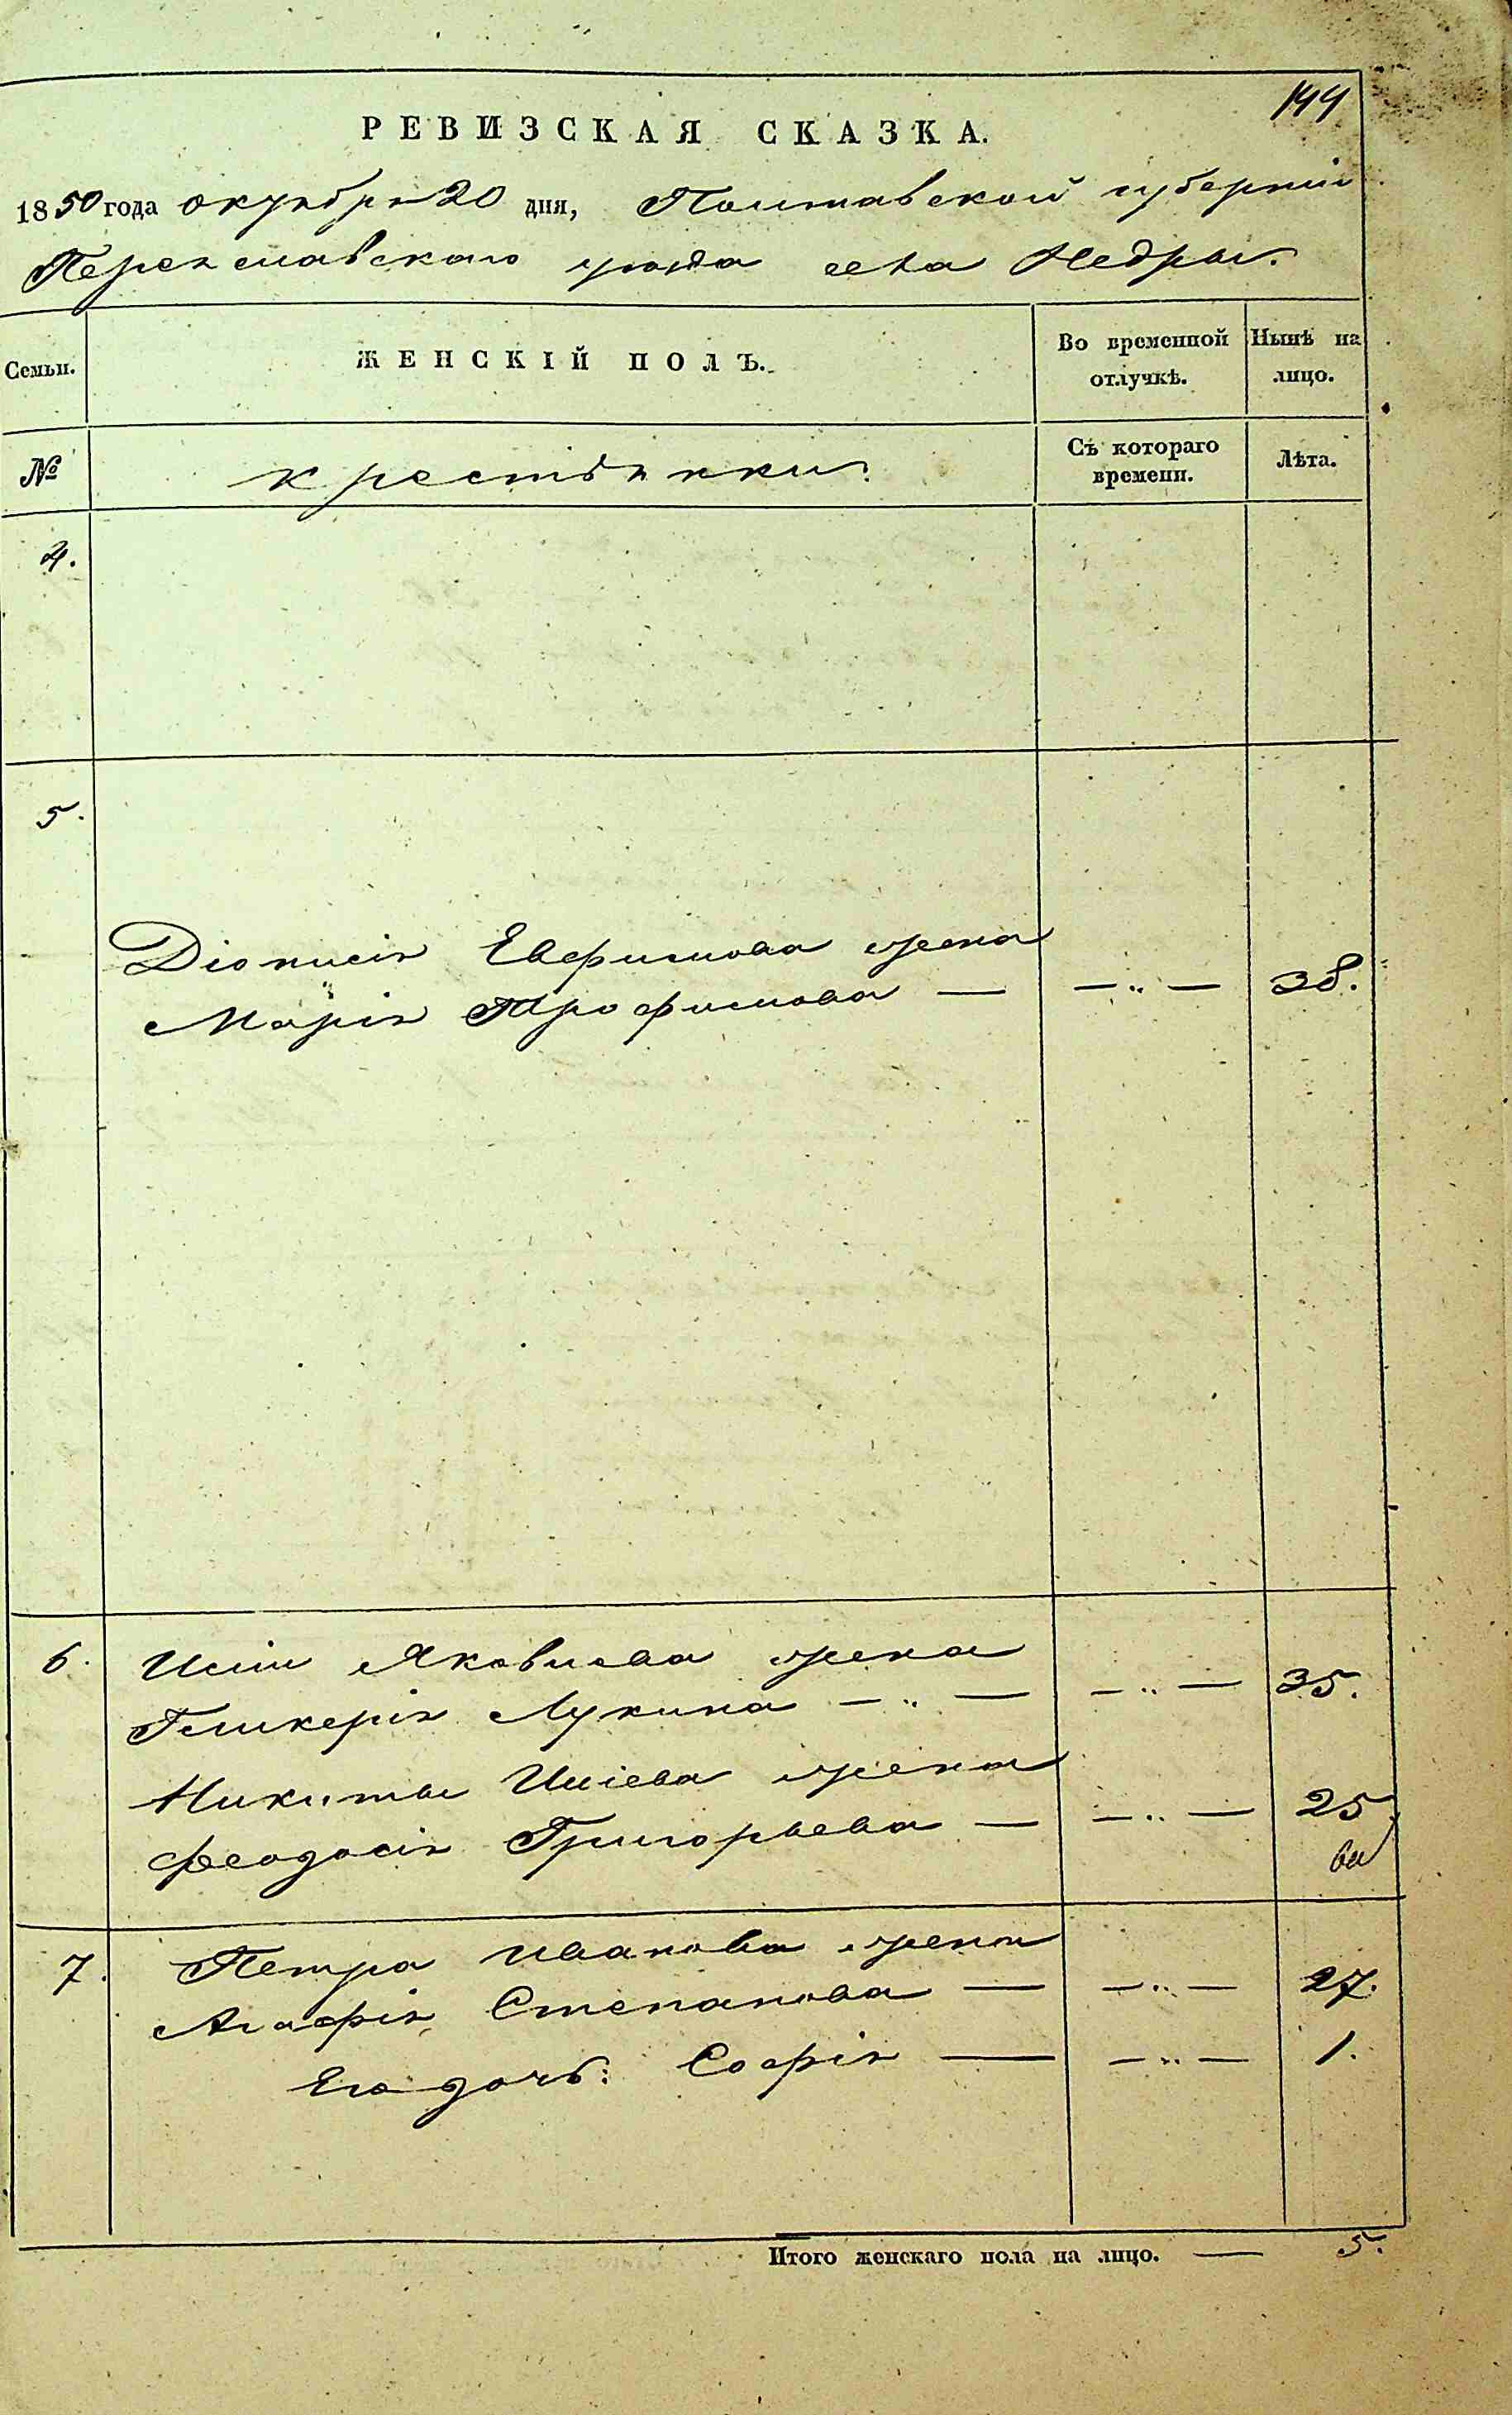 144
РЕВИЗСКАЯ СКАЗКА.
1850 года октября 20 дня, Полтавской губерніи
Переяславскаго уезда села Недры.
Семьи. ЖЕНСКІЙ ПОЛЪ. Во временной отлучкѣ. Нынѣ на лицо.
№ крестьянки. Съ котораго времени. Лѣта.
4.
5.
Діонисія Евфимова жена
Марія Трофимова — — „ — 38.
6. Иліи Яковлева жена
Гликерія Лукина — „ — — „ — 35.
Никиты Иліева жена
Феодосія Григорьева — — „ — 25
7. Петра Иванова жена
Агафія Степанова — — „ — 27.
Его дочь: Софія — — „ — 1.
Итого женскаго пола на лицо. — 5.